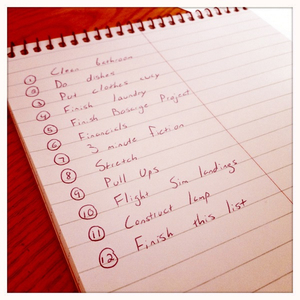 ① Clean bathroom
② Do dishes
③ Put clothes away
④ Finish laundry
⑤ Finish Project
⑥ Financials
⑦ 3 minute fiction
⑧ Stretch
⑨ Pull Ups
⑩ Flight Sim landings
⑪ Construct lamp
⑫ Finish this list